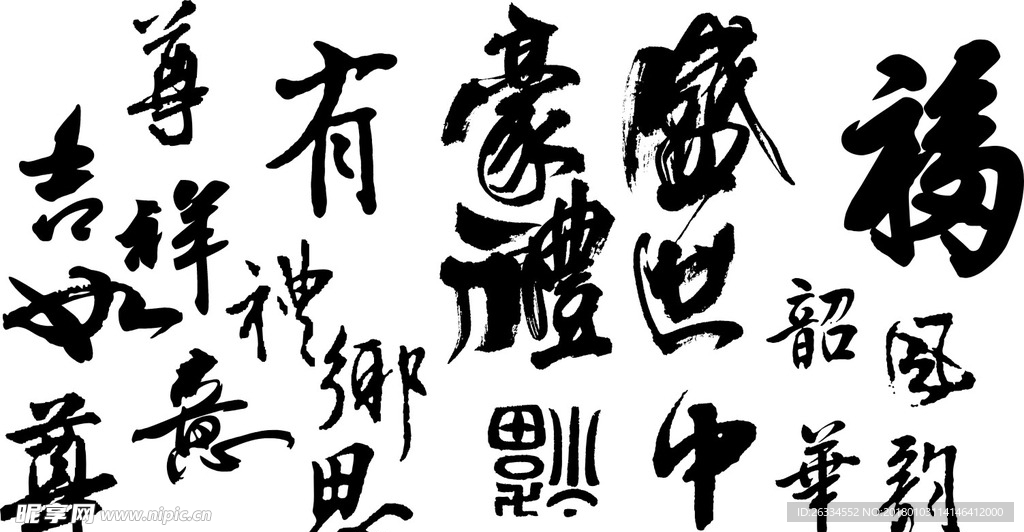 尊
吉祥
如意
尊
有
禮
鄉思
豪禮
福
盛世
中
福
韶華
風韵
昵享网 www.nipic.cn
ID:26334552 NO:20180103114146412000